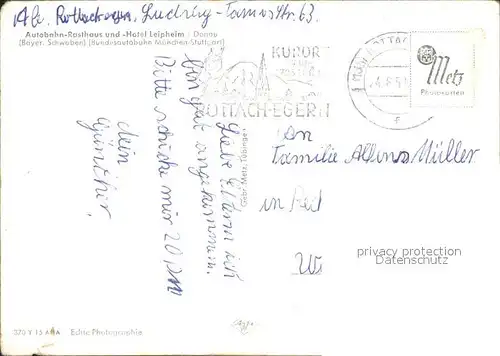 Abs. Rottach-Egern, Ludwig-Thoma-Str. 63.
Autobahn-Rasthaus und -Hotel Leipheim / Donau
(Bayer. Schwaben) (Bundesautobahn München-Stuttgart)
KURORT
ROTTACH-EGERN
Metz
Photokarten
Liebe Eltern ich
bin gut angekommen.
Bitte schicke mir 20 DM
dein
Günther,
Gebr. Metz, Tübingen
An
Familie Alfons Müller
in
privacy protection
Datenschutz
Echte Photographie